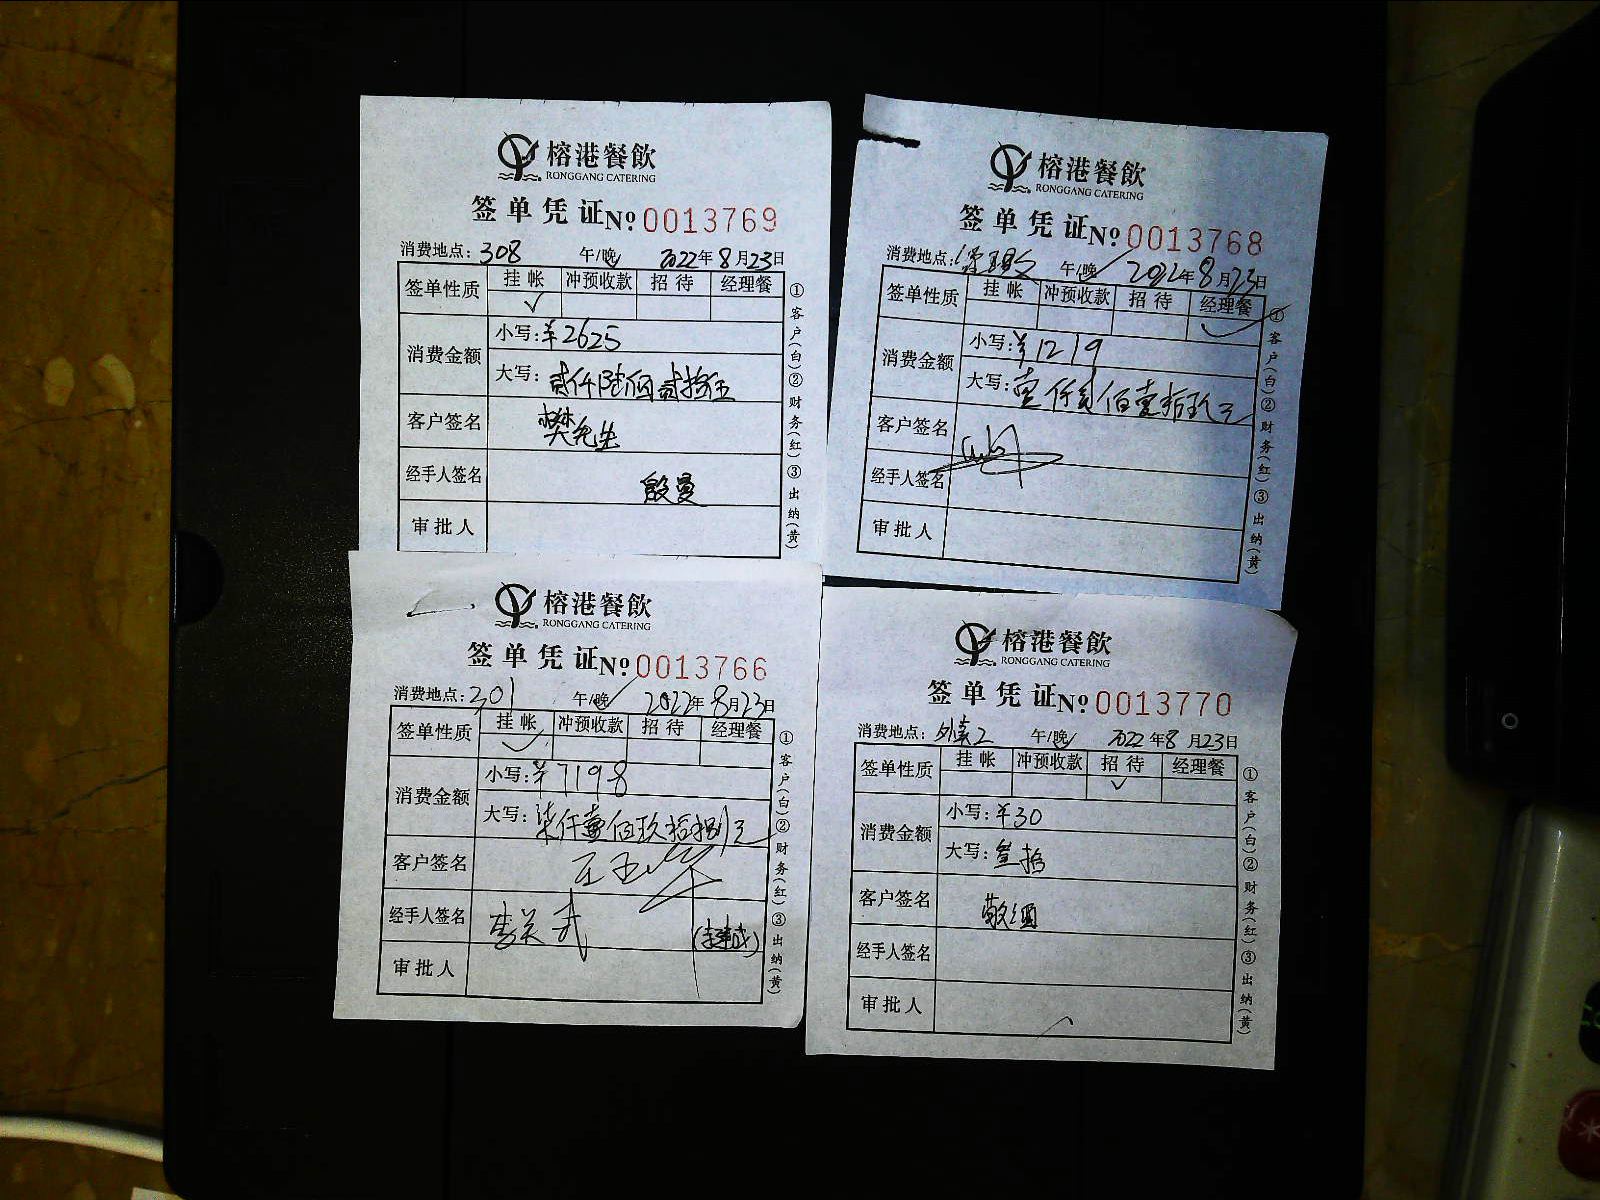 榕港餐飲
RONGGANG CATERING
签单凭证 No 0013769
消费地点：308 午/晚 2022年8月23日
签单性质 挂帐 冲预收款 招待 经理餐
√
消费金额 小写：¥2625
大写：贰仟陆佰贰拾伍
客户签名 樊先生
经手人签名 殷曼
审批人
①客户(白)②财务(红)③出纳(黄)
榕港餐飲
RONGGANG CATERING
签单凭证 No 0013768
消费地点： 午/晚 2022年8月23日
签单性质 挂帐 冲预收款 招待 经理餐
√
消费金额 小写：¥1219
大写：壹仟贰佰壹拾玖元
客户签名
经手人签名
审批人
①客户(白)②财务(红)③出纳(黄)
榕港餐飲
RONGGANG CATERING
签单凭证 No 0013766
消费地点：301 午/晚 2022年8月23日
签单性质 挂帐 冲预收款 招待 经理餐
√
消费金额 小写：¥7198
大写：柒仟壹佰玖拾捌元
客户签名
经手人签名
审批人
①客户(白)②财务(红)③出纳(黄)
榕港餐飲
RONGGANG CATERING
签单凭证 No 0013770
消费地点：外卖2 午/晚 2022年8月23日
签单性质 挂帐 冲预收款 招待 经理餐
√
消费金额 小写：¥30
大写：叁拾
客户签名 敬酒
经手人签名
审批人
①客户(白)②财务(红)③出纳(黄)